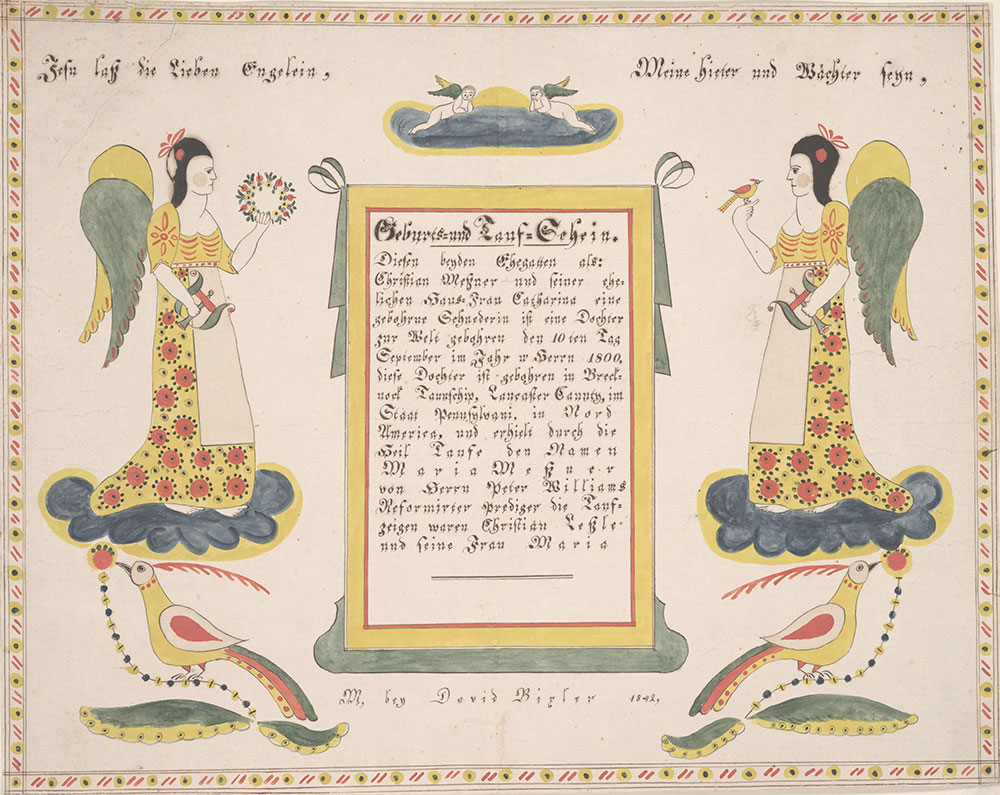 Jesu lass die Lieben Engelein,
Meine hieter und Wächter seyn,
Geburts=und Tauf=Schein.
Diesen beyden Ehegatten als:
Christian Meßner und seiner ehe-
lichen Haus=Frau Catharina eine
gebohrne Schnederin ist eine Dochter
zur Welt gebohren den 10ten Tag
September im Jahr u Herrn 1800,
diese Dochter ist gebohren in Breck-
nock Taunschip, Lancaster Caunty, im
Staat Pennsylvani. in Nord
America, und erhielt durch die
Heil Taufe den Namen
Maria Meßner
von Herrn Peter Williams
Reformirter Prediger die Tauf-
zeigen waren Christian Leßle
und seine Frau Maria
M. bey David Bixler 1842.